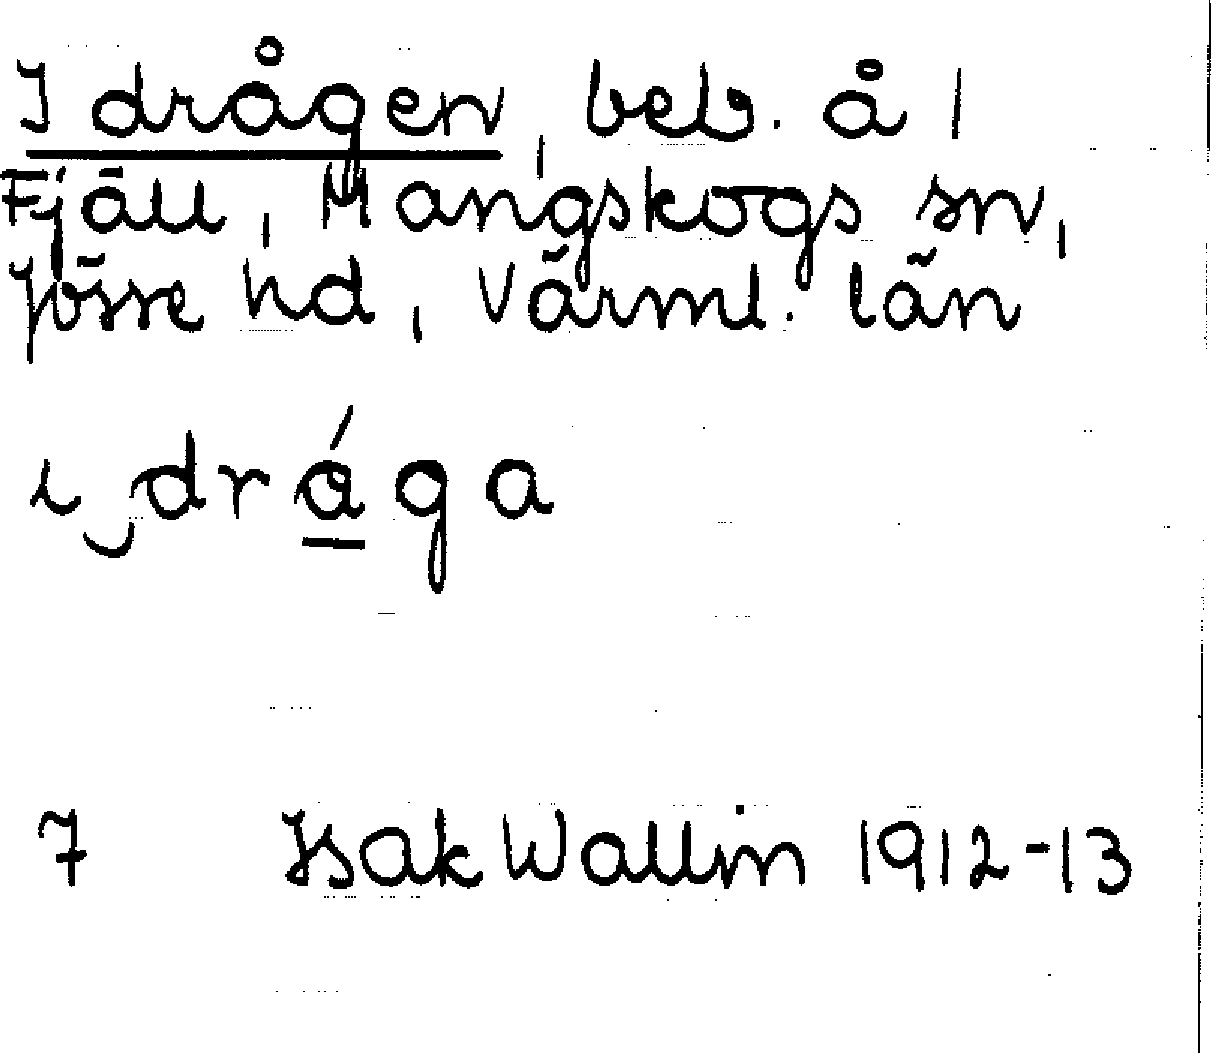 I drågen, beb. å /
Fjäll, Mangskogs sn,
Jösse hd, Värml. län
i drága
7 Isak Wallin 1912-13